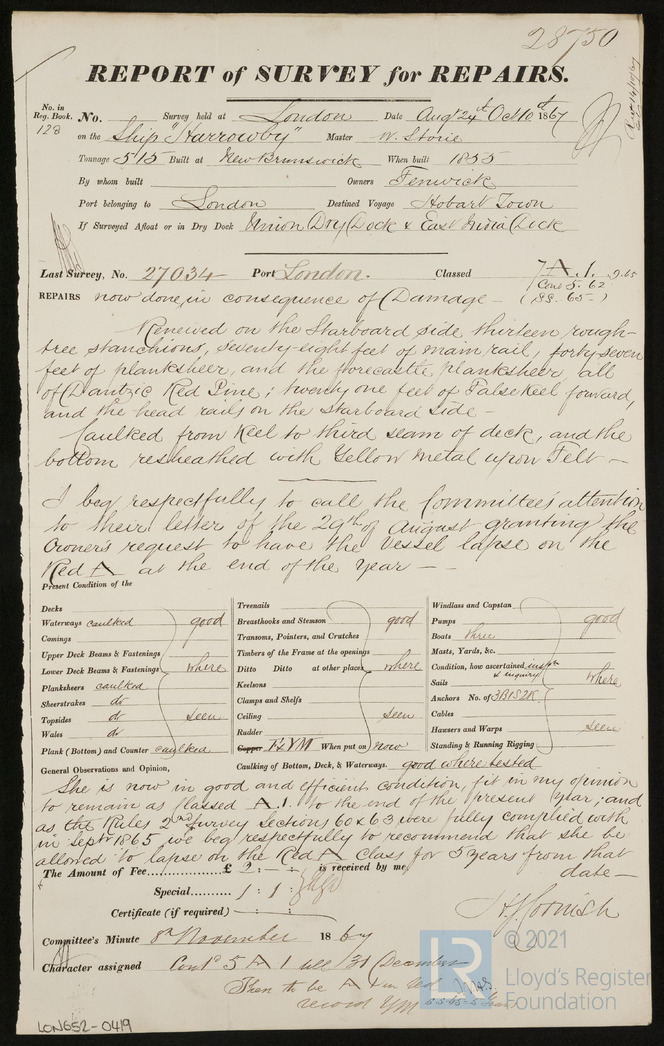 28750
REPORT of SURVEY for REPAIRS.
No. in Reg. Book. 123 No. Survey held at London Date Augt 24th Oct 10th 1867
on the Ship "Harrowby" Master W. Storie
Tonnage 515 Built at New Brunswick When built 1855
By whom built Owners Fenwick
Port belonging to London Destined Voyage Hobart Town
If Surveyed Afloat or in Dry Dock Union Dry Dock & East India Dock
Last Survey, No. 27034 Port London. Classed 7 A.1. 9.65
Cont 5. 62
(SS. 65-)
REPAIRS now done, in consequence of Damage -
Renewed on the Starboard side thirteen rough-
tree stanchions, seventy-eight feet of main rail, forty-seven
feet of planksheer, and the forecastle planksheer all
of Dantzic Red Pine; twenty one feet of False Keel forward,
and the head rails on the Starboard Side -
Caulked from Keel to third seam of deck, and the
bottom resheathed with Yellow Metal upon Felt -
I beg respectfully to call the Committee's attention
to their letter of the 29th of August granting the
Owner's request to have the Vessel lapse on the
Red A at the end of the Year -
Present Condition of the
Decks
Waterways caulked good
Comings
Upper Deck Beams & Fastenings
Lower Deck Beams & Fastenings where
Planksheers caulked
Sheerstrakes do
Topsides do seen
Wales do
Plank (Bottom) and Counter caulked
Treenails
Breasthooks and Stemson good
Transoms, Pointers, and Crutches
Timbers of the Frame at the openings
Ditto Ditto at other places where
Keelsons
Clamps and Shelfs
Ceiling seen
Rudder
Copper F & YM When put on now
Caulking of Bottom, Deck, & Waterways. good where tested
Windlass and Capstan
Pumps good
Boats three
Masts, Yards, &c.
Condition, how ascertained inspn & inquiry
Sails where
Anchors No. of 3B1S2K
Cables
Hawsers and Warps seen
Standing & Running Rigging
General Observations and Opinion,
She is now in good and efficient condition, fit in my opinion
to remain as classed A.1. to the end of the present year; and
as the Rules 2nd Survey Sections 60 & 63 were fully complied with
in Sept 1865 we beg respectfully to recommend that she be
allowed to lapse on the Red A class for 5 years from that
date -
The Amount of Fee £ 2 : - : - is received by me,
Special 1 : 1 :
Certificate (if required)
Committee's Minute 8th November 1867
Character assigned Contd 5 A 1 till 31 December
Then to be A in Red
record YM
© 2021
LR
Lloyd's Register
Foundation
LON652-0419